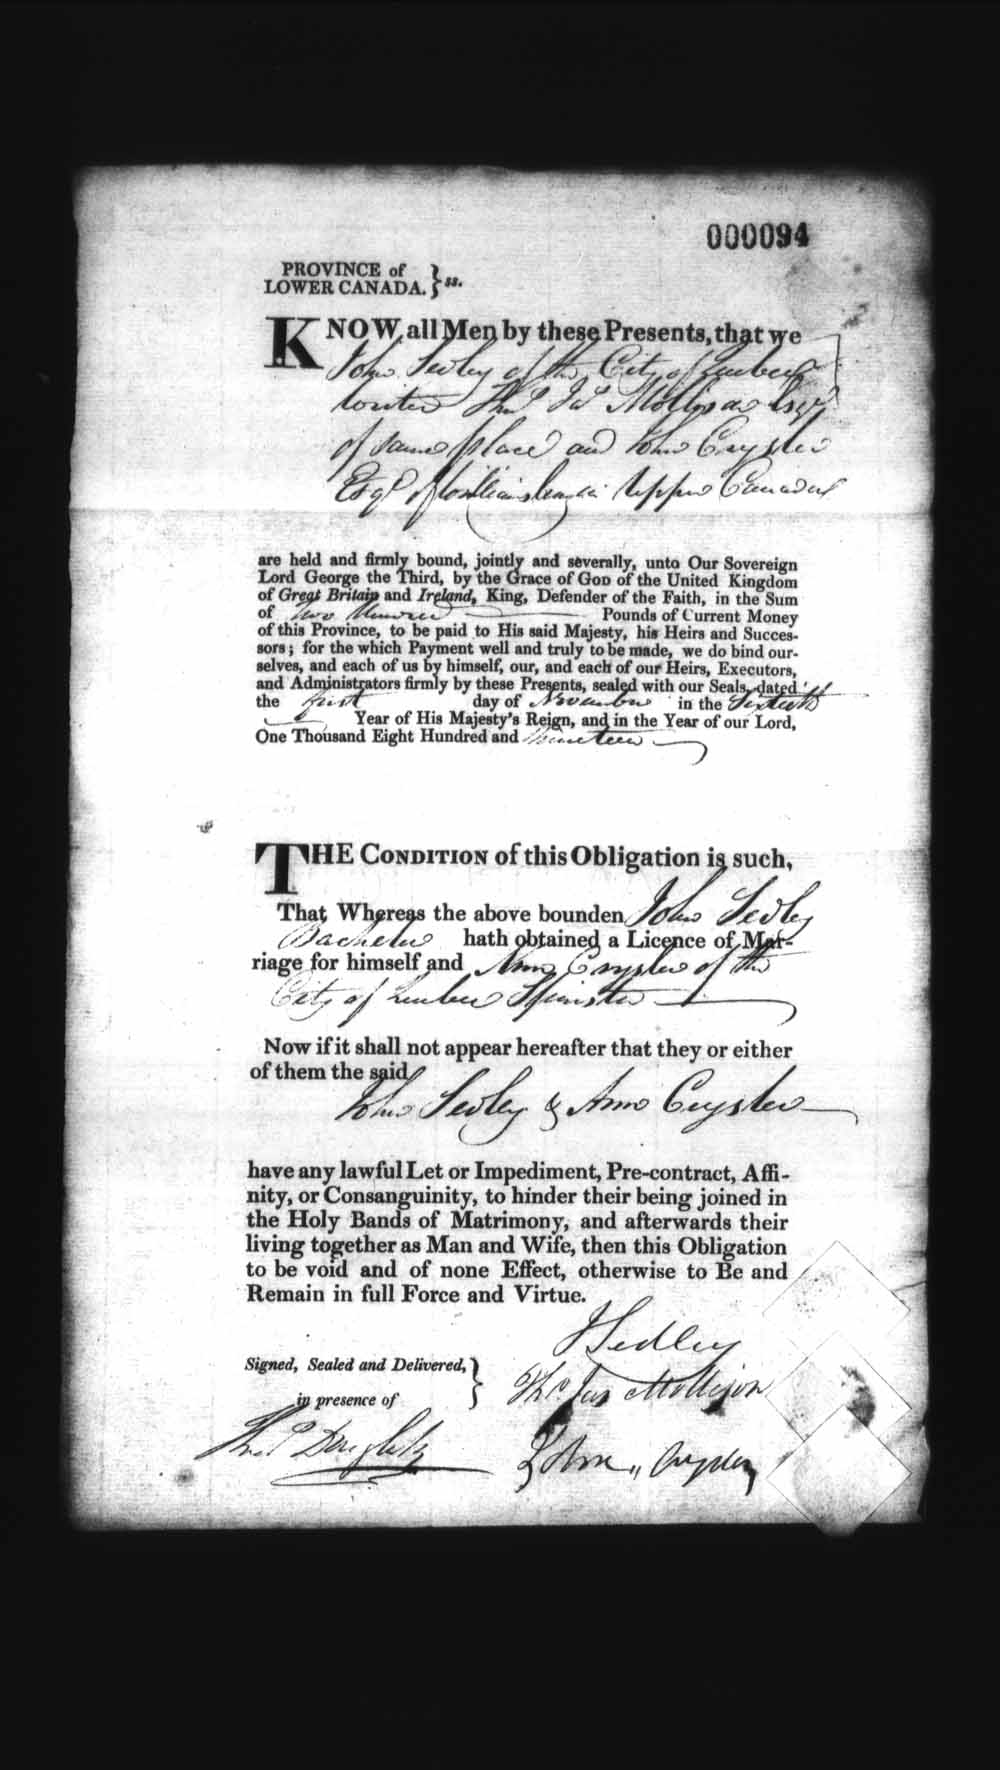 000094
PROVINCE of
LOWER CANADA. } ss.
KNOW all Men by these Presents, that we
John Sedley of the City of Quebec
writer Thos Jas Mollison Esqr
of same place and John Crysler
Esqr of Williamsburg in Upper Canada
are held and firmly bound, jointly and severally, unto Our Sovereign
Lord George the Third, by the Grace of GOD of the United Kingdom
of Great Britain and Ireland, King, Defender of the Faith, in the Sum
of two Hundred Pounds of Current Money
of this Province, to be paid to His said Majesty, his Heirs and Succes-
sors; for the which Payment well and truly to be made, we do bind our-
selves, and each of us by himself, our, and each of our Heirs, Executors,
and Administrators firmly by these Presents, sealed with our Seals, dated
the first day of November in the Sixtieth
Year of His Majesty's Reign, and in the Year of our Lord,
One Thousand Eight Hundred and Nineteen
THE CONDITION of this Obligation is such,
That Whereas the above bounden John Sedley
Bachelor hath obtained a Licence of Mar-
riage for himself and Ann Crysler of the
City of Quebec Spinster
Now if it shall not appear hereafter that they or either
of them the said
John Sedley & Ann Crysler
have any lawful Let or Impediment, Pre-contract, Affi-
nity, or Consanguinity, to hinder their being joined in
the Holy Bands of Matrimony, and afterwards their
living together as Man and Wife, then this Obligation
to be void and of none Effect, otherwise to Be and
Remain in full Force and Virtue.
J Sedley
Signed, Sealed and Delivered, }
Thos Jas Mollison
in presence of
Thos Douglas
John Crysler